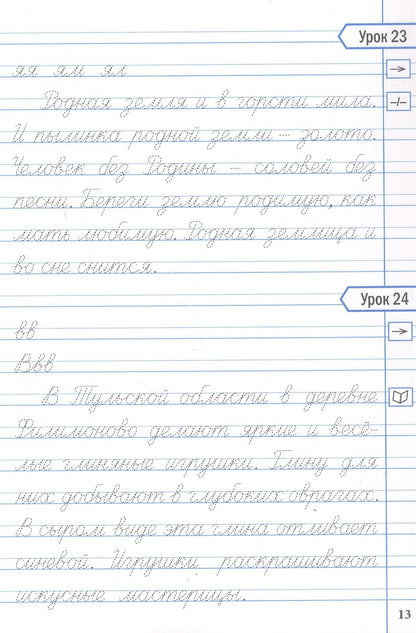 Урок 23
яя ям ял
Родная земля и в горсти мила.
И пылинка родной земли – золото.
Человек без Родины – соловей без
песни. Береги землю родимую, как
мать любимую. Родная землица и
во сне снится.
Урок 24
вв
Ввв
В Тульской области в деревне
Филимоново делают яркие и весё-
лые глиняные игрушки. Глину для
них добывают в глубоких оврагах.
В сыром виде эта глина отливает
синевой. Игрушки раскрашивают
искусные мастерицы.
13